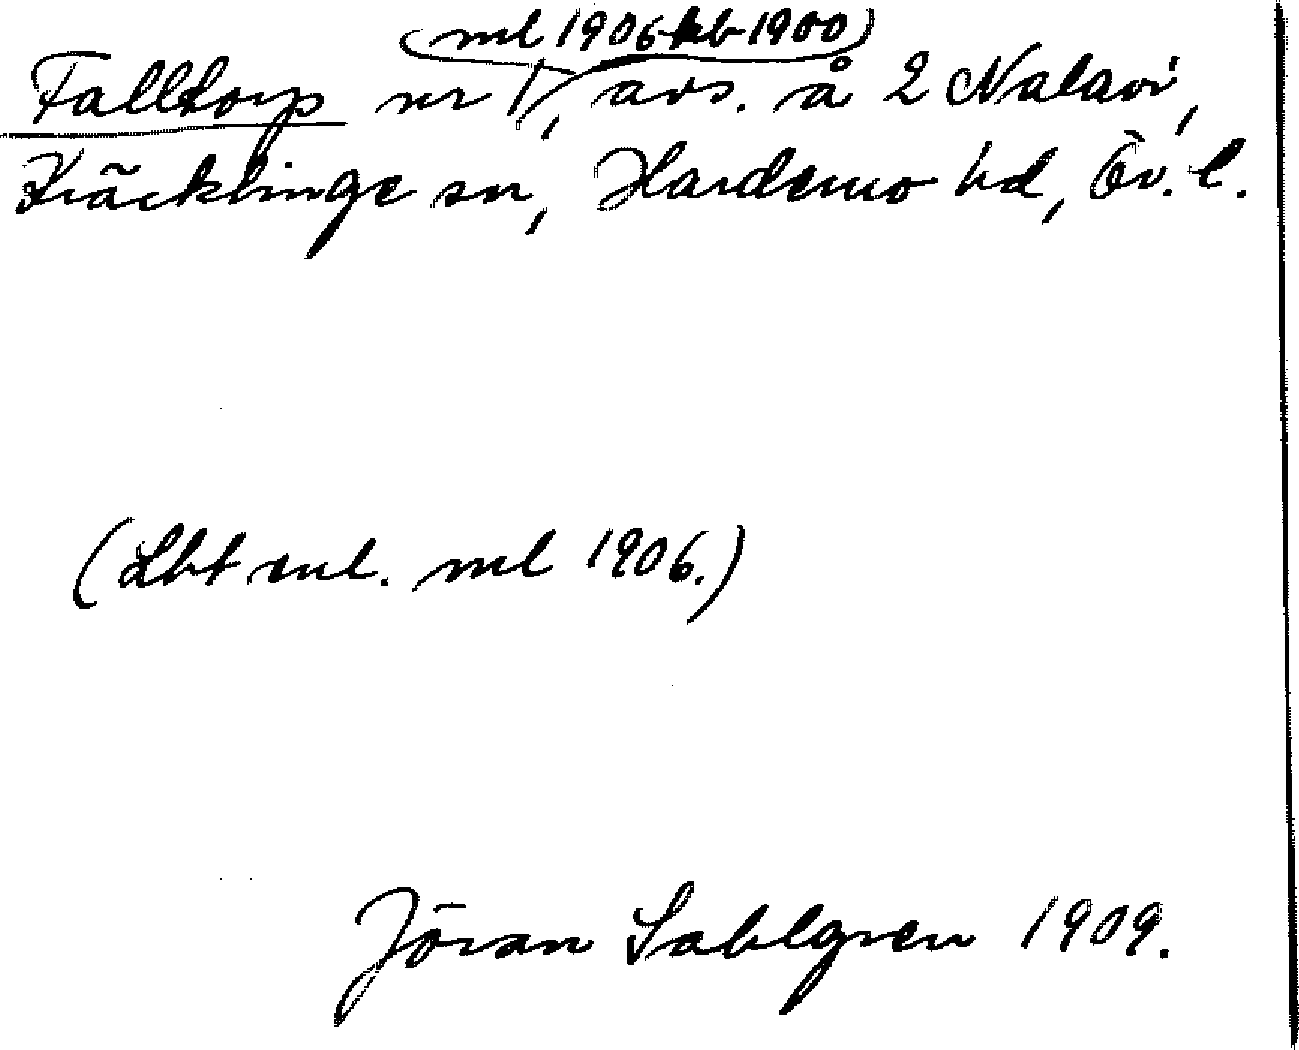 (ml 1906 hb 1900)
Falltorp nr 1, avs. å 2 Nalavi,
Kräcklinge sn, Hardemo hd, Öv. l.
(Lbt enl. ml 1906.)
Jöran Sahlgren 1909.